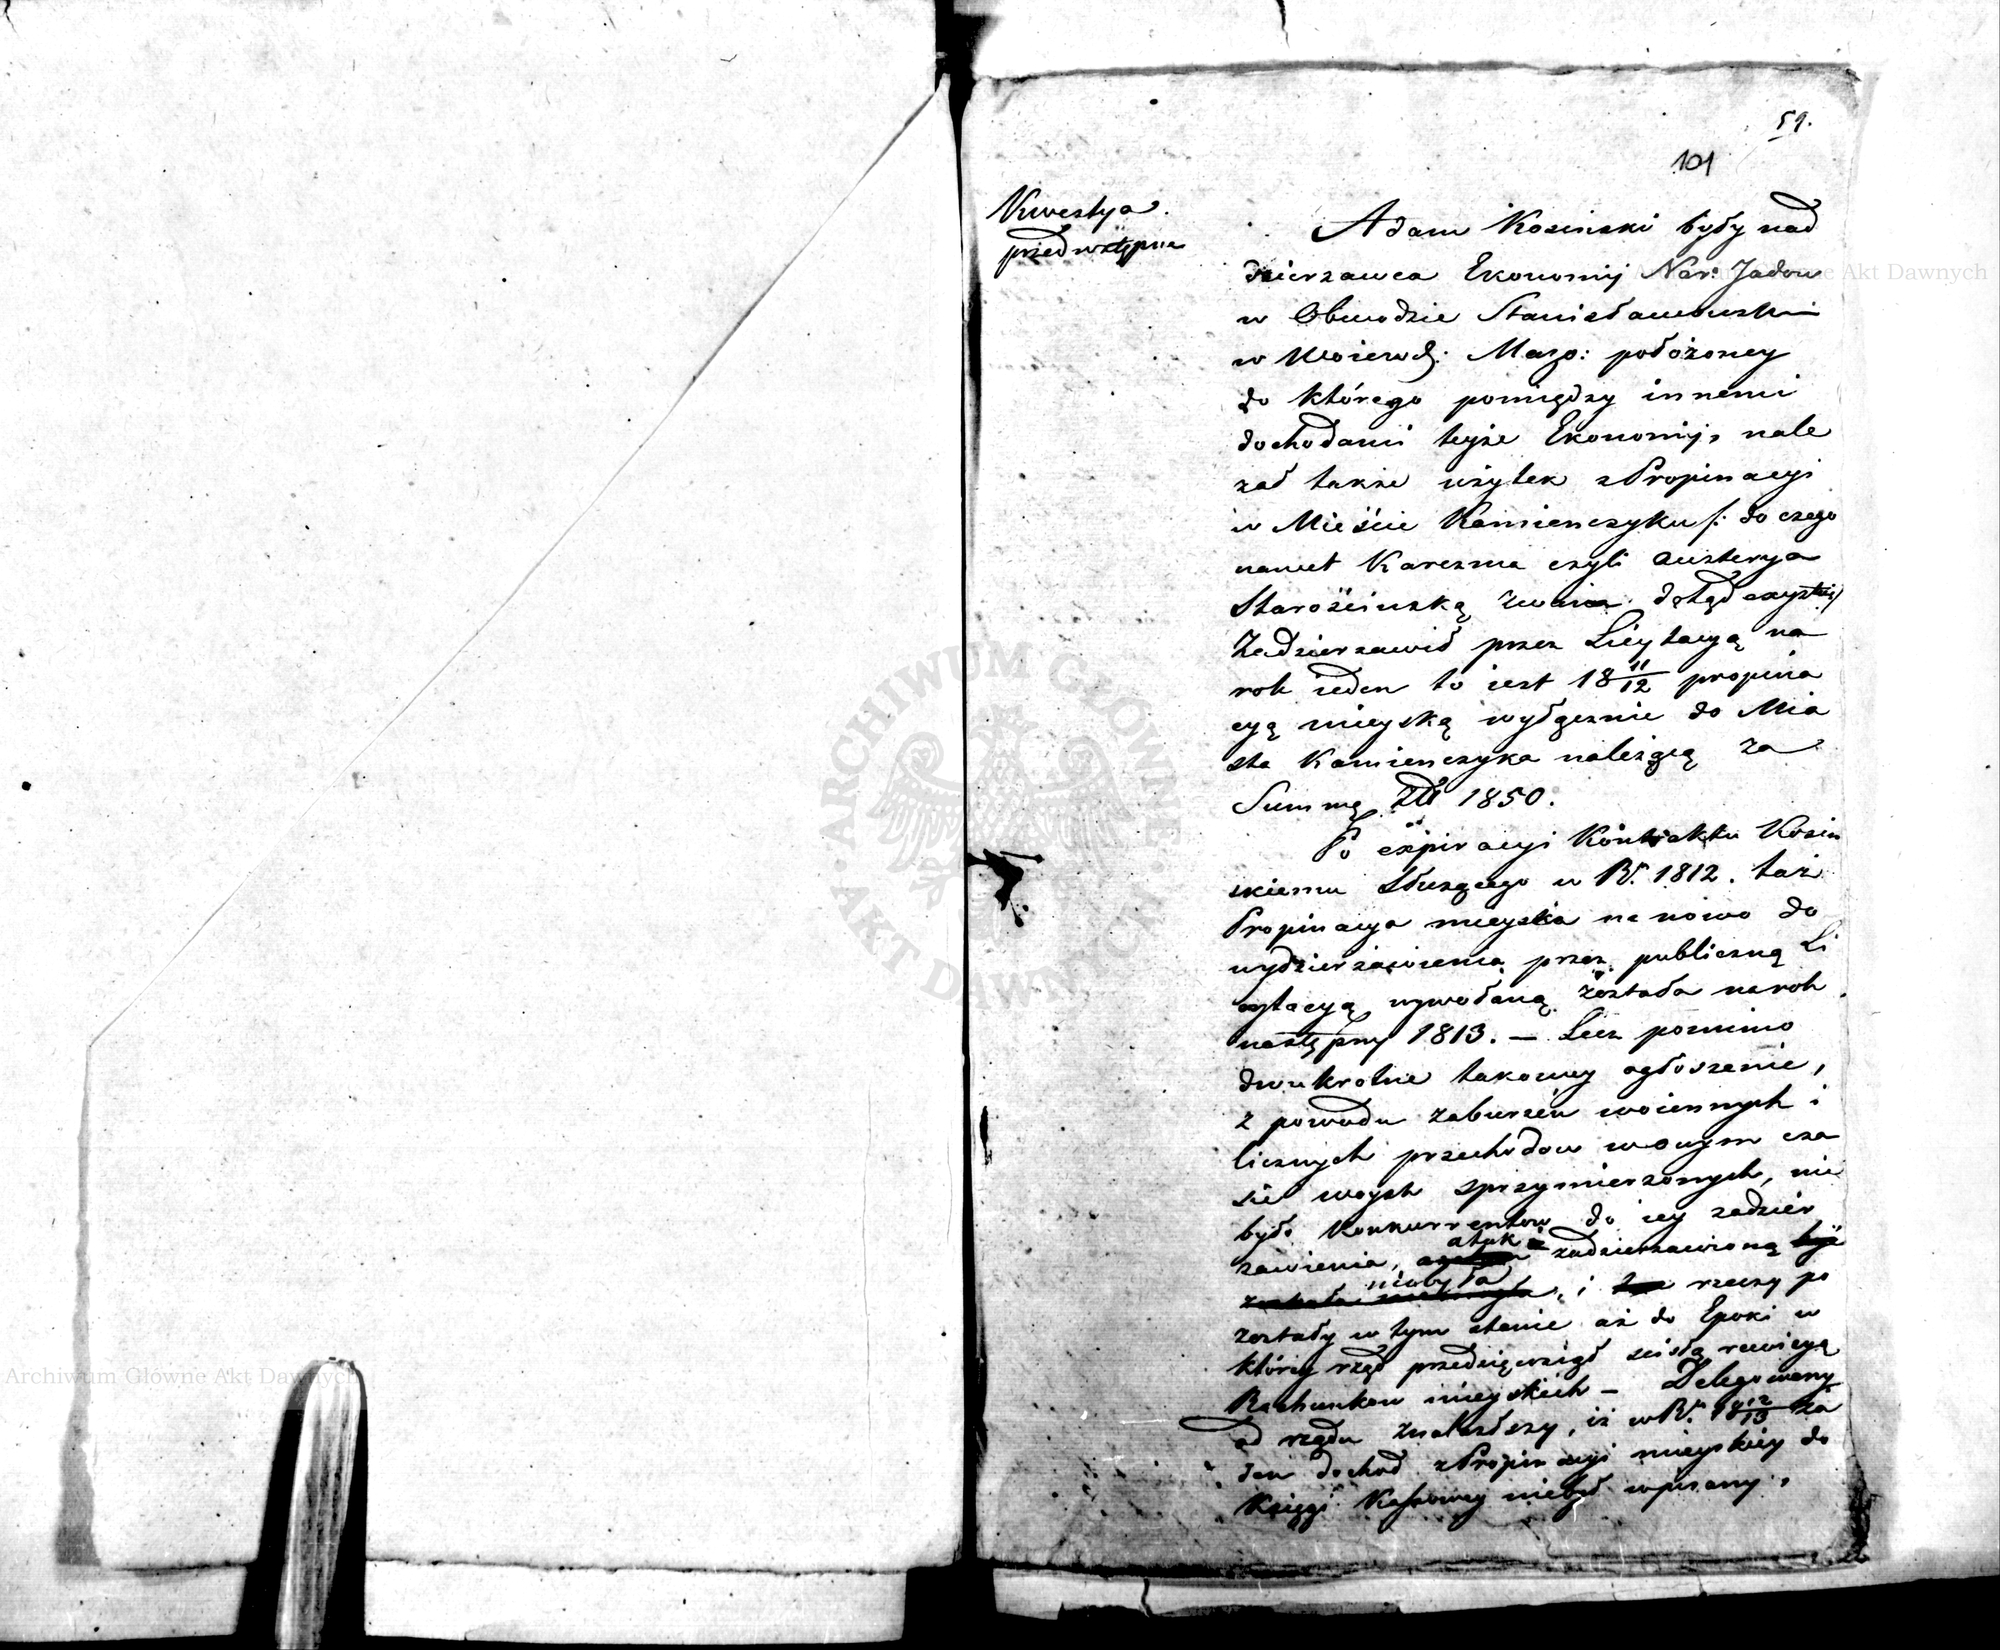 59.
101
Kwestya
przedwstępna
Adam Kosinski były nad
dzierzawca Ekonomij Nar: Jadow
w Obwodzie Stanisławowskim
w Woiewd: Mazo: położoney
do którego pomiędzy innemi
dochodami teyże Ekonomij, nale
zał takze użytek z Propinacyi
w Mieście Kamienczyku /: do czego
nawet Karczma czyli Austerya
Starościnską zwana dotąd exystuie/
Zadzierzawił przez Licytacyą na
rok ieden to iest 18 11/12 propina
cyą mieyską wyłącznie do Mia
sta Kamienczyka należącą za
Summę Złł 1850.
Po expiracyi Kontraktu Kosin
skiemu służącego w R. 1812. taż
Propinacya mieyska na nowo do
wydzierżawienia przez publiczną Li
cytacyą wywołaną została na rok
następny 1813. — Lecz pomimo
dwukrotne takowey ogłoszenie,
z powodu zaburzeń woiennych i
licznych przechodow w owym cza
sie woysk sprzymierzonych, nie
było Konkurrentow do iey zadzier
zawienia, atak zadzierzawioną
niebyła, i rzeczy po
zostały w tym stanie aż do Epoki w
którey rząd przedsięwziął scisłą rewizyą
Rachunkow mieyskich — Delegowany
od rządu znalazłszy, iż w R. 18 12/13 ża
den dochod z Propinacyi mieyskiey do
Księgi Kassowey niebył wpisany,
ARCHIWUM GŁÓWNE AKT DAWNYCH
Archiwum Główne Akt Dawnych
Archiwum Główne Akt Dawnych